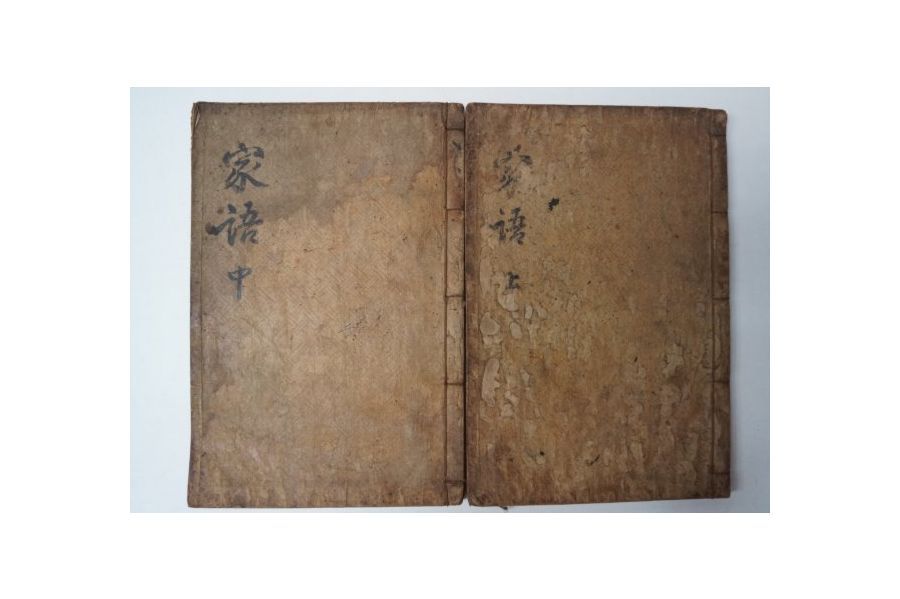 家語 上
家語 中